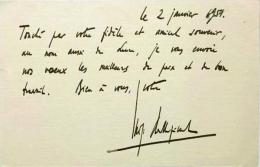 le 2 janvier 1951.
Touché par votre fidèle et amical souvenir,
au nom aussi de, je vous envoie
nos vœux les meilleurs de paix et de bon
travail. Bien à vous, votre